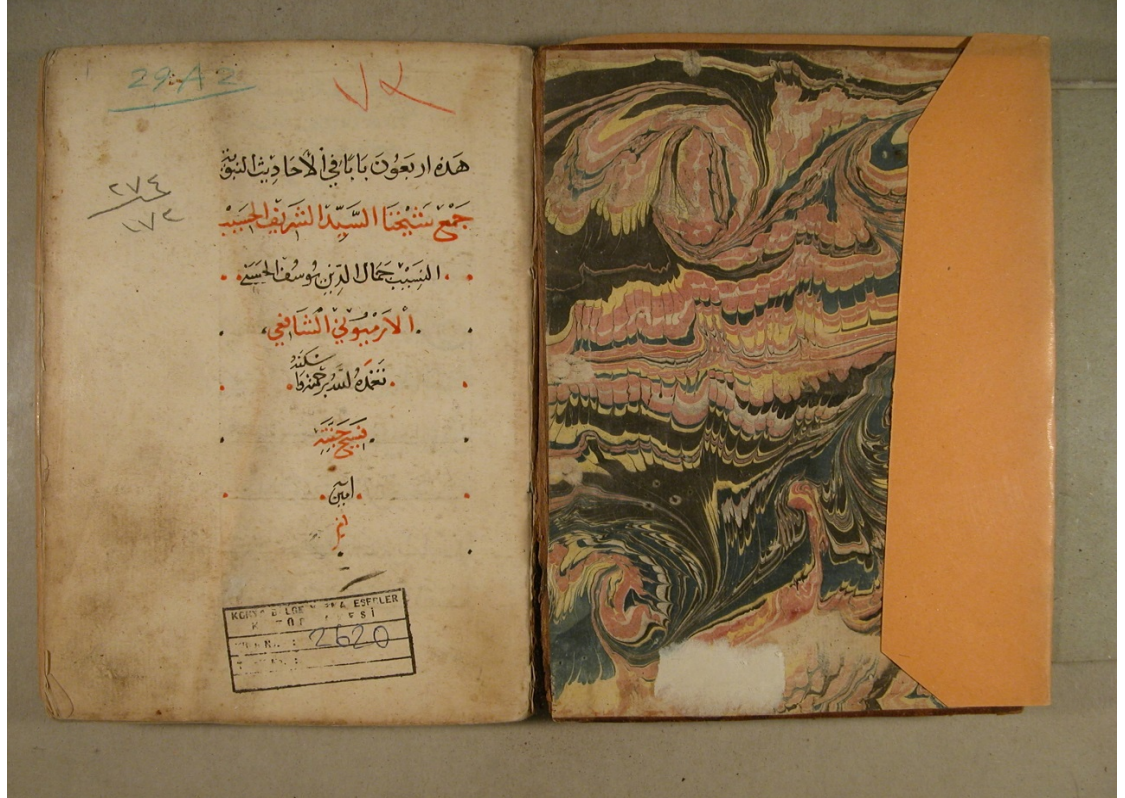 29-A2
٧٢
٢٧٤
١٧٢
هَذه اربَعُونَ بَابًا في ألأحَادِيث النبَويّة
جَمْع شَيْخنَا السَّيِّد الشريف الحَسيب
النسيب جمال الدين يوسف الحسنى
الارميُونِي الشافعي
تغمده الله برحمته واسكنه
فَسِيح جَنّتِه
امين
KONYA BÖLGE YAZMA ESERLER
KÜTÜPHANESİ
2620